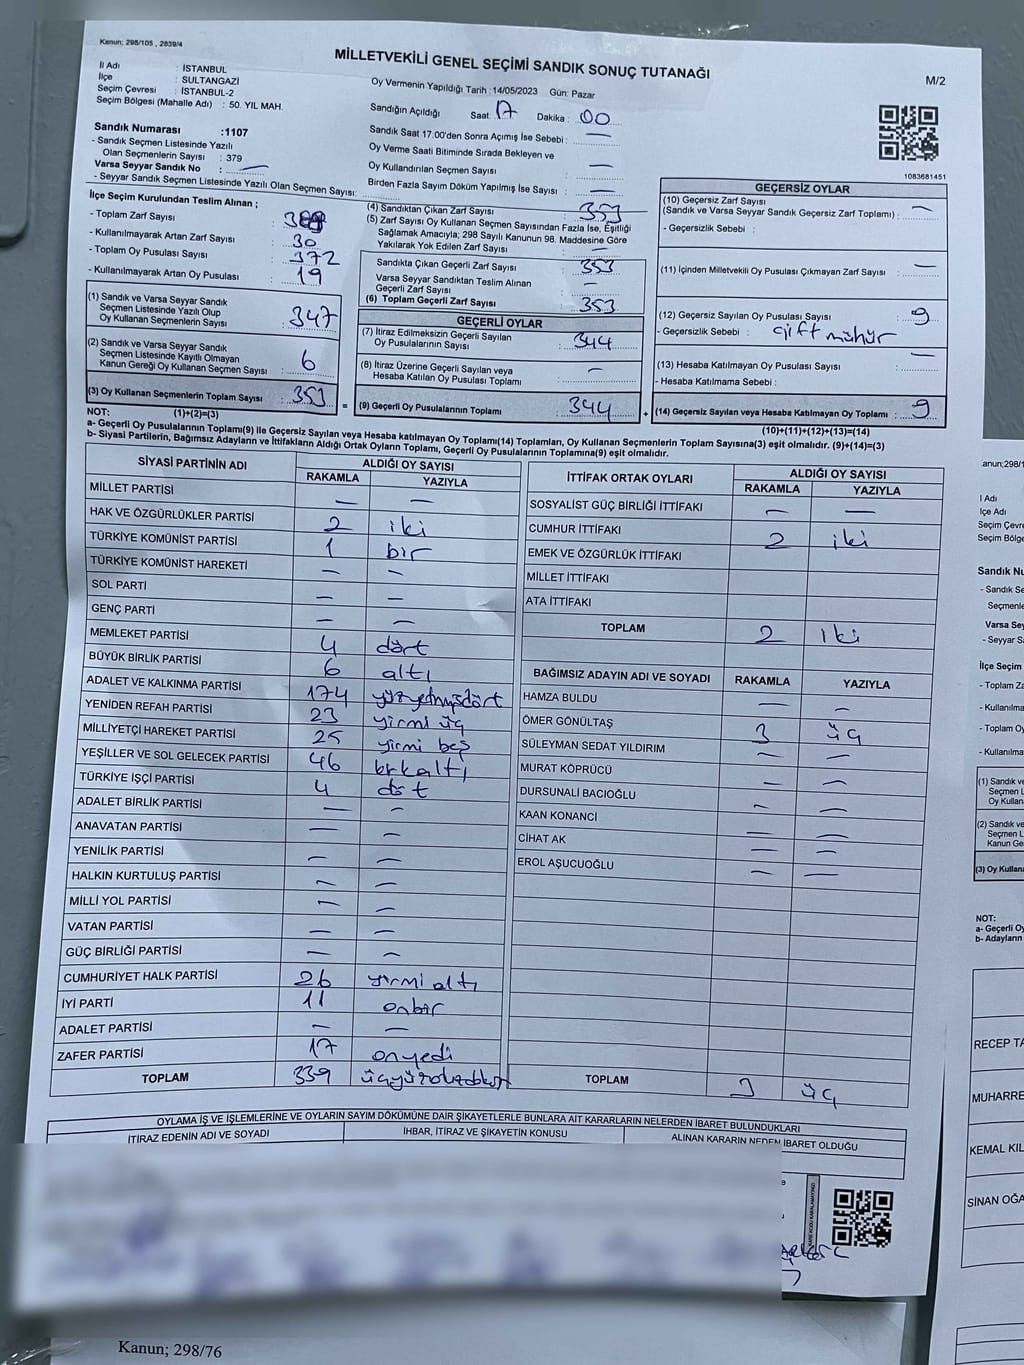 Kanun; 298/105 , 2839/4
MİLLETVEKİLİ GENEL SEÇİMİ SANDIK SONUÇ TUTANAĞI
M/2
İl Adı : İSTANBUL
İlçe : SULTANGAZİ
Seçim Çevresi : İSTANBUL-2
Seçim Bölgesi (Mahalle Adı) : 50. YIL MAH.
Sandık Numarası :1107
- Sandık Seçmen Listesinde Yazılı
Olan Seçmenlerin Sayısı : 379
Varsa Seyyar Sandık No : —
- Seyyar Sandık Seçmen Listesinde Yazılı Olan Seçmen Sayısı:
Oy Vermenin Yapıldığı Tarih :14/05/2023 Gün: Pazar
Sandığın Açıldığı Saat: 17 Dakika : 00
Sandık Saat 17.00'den Sonra Açılmış İse Sebebi : —
Oy Verme Saati Bitiminde Sırada Bekleyen ve
Oy Kullandırılan Seçmen Sayısı : —
Birden Fazla Sayım Döküm Yapılmış İse Sayısı : —
1083681451
İlçe Seçim Kurulundan Teslim Alınan ;
- Toplam Zarf Sayısı :
- Kullanılmayarak Artan Zarf Sayısı : 30
- Toplam Oy Pusulası Sayısı : 372
- Kullanılmayarak Artan Oy Pusulası : 19
(1) Sandık ve Varsa Seyyar Sandık
Seçmen Listesinde Yazılı Olup
Oy Kullanan Seçmenlerin Sayısı : 347
(2) Sandık ve Varsa Seyyar Sandık
Seçmen Listesinde Kayıtlı Olmayan
Kanun Gereği Oy Kullanan Seçmen Sayısı : 6
(3) Oy Kullanan Seçmenlerin Toplam Sayısı : 353
(4) Sandıktan Çıkan Zarf Sayısı : 353
(5) Zarf Sayısı Oy Kullanan Seçmen Sayısından Fazla İse, Eşitliği
Sağlamak Amacıyla; 298 Sayılı Kanunun 98. Maddesine Göre
Yakılarak Yok Edilen Zarf Sayısı : —
Sandıkta Çıkan Geçerli Zarf Sayısı : 353
Varsa Seyyar Sandıktan Teslim Alınan
Geçerli Zarf Sayısı : —
(6) Toplam Geçerli Zarf Sayısı : 353
GEÇERLİ OYLAR
(7) İtiraz Edilmeksizin Geçerli Sayılan
Oy Pusulalarının Sayısı : 344
(8) İtiraz Üzerine Geçerli Sayılan veya
Hesaba Katılan Oy Pusulası Toplamı : —
= (9) Geçerli Oy Pusulalarının Toplamı : 344
GEÇERSİZ OYLAR
(10) Geçersiz Zarf Sayısı
(Sandık ve Varsa Seyyar Sandık Geçersiz Zarf Toplamı) : —
- Geçersizlik Sebebi :
(11) İçinden Milletvekili Oy Pusulası Çıkmayan Zarf Sayısı : —
(12) Geçersiz Sayılan Oy Pusulası Sayısı : 9
- Geçersizlik Sebebi : çift mühür
(13) Hesaba Katılmayan Oy Pusulası Sayısı : —
- Hesaba Katılmama Sebebi :
+ (14) Geçersiz Sayılan veya Hesaba Katılmayan Oy Toplamı : 9
NOT: (1)+(2)=(3)
(10)+(11)+(12)+(13)=(14)
a- Geçerli Oy Pusulalarının Toplamı(9) ile Geçersiz Sayılan veya Hesaba katılmayan Oy Toplamı(14) Toplamları, Oy Kullanan Seçmenlerin Toplam Sayısına(3) eşit olmalıdır. (9)+(14)=(3)
b- Siyasi Partilerin, Bağımsız Adayların ve İttifakların Aldığı Ortak Oyların Toplamı, Geçerli Oy Pusulalarının Toplamına(9) eşit olmalıdır.
SİYASİ PARTİNİN ADI ALDIĞI OY SAYISI
RAKAMLA YAZIYLA
MİLLET PARTİSİ — —
HAK VE ÖZGÜRLÜKLER PARTİSİ 2 iki
TÜRKİYE KOMÜNİST PARTİSİ 1 bir
TÜRKİYE KOMÜNİST HAREKETİ — —
SOL PARTİ — —
GENÇ PARTİ — —
MEMLEKET PARTİSİ 4 dört
BÜYÜK BİRLİK PARTİSİ 6 altı
ADALET VE KALKINMA PARTİSİ 174 yüzyetmişdört
YENİDEN REFAH PARTİSİ 23 yirmi üç
MİLLİYETÇİ HAREKET PARTİSİ 25 yirmi beş
YEŞİLLER VE SOL GELECEK PARTİSİ 46 kırkaltı
TÜRKİYE İŞÇİ PARTİSİ 4 dört
ADALET BİRLİK PARTİSİ — —
ANAVATAN PARTİSİ — —
YENİLİK PARTİSİ — —
HALKIN KURTULUŞ PARTİSİ — —
MİLLİ YOL PARTİSİ — —
VATAN PARTİSİ — —
GÜÇ BİRLİĞİ PARTİSİ — —
CUMHURİYET HALK PARTİSİ 26 yirmi altı
İYİ PARTİ 11 onbir
ADALET PARTİSİ — —
ZAFER PARTİSİ 17 onyedi
TOPLAM 339 üçyüzotuzdokuz
İTTİFAK ORTAK OYLARI ALDIĞI OY SAYISI
RAKAMLA YAZIYLA
SOSYALİST GÜÇ BİRLİĞİ İTTİFAKI — —
CUMHUR İTTİFAKI 2 iki
EMEK VE ÖZGÜRLÜK İTTİFAKI
MİLLET İTTİFAKI
ATA İTTİFAKI
TOPLAM 2 iki
BAĞIMSIZ ADAYIN ADI VE SOYADI RAKAMLA YAZIYLA
HAMZA BULDU — —
ÖMER GÖNÜLTAŞ 3 üç
SÜLEYMAN SEDAT YILDIRIM — —
MURAT KÖPRÜCÜ — —
DURSUNALİ BACIOĞLU — —
KAAN KONANCİ — —
CİHAT AK — —
EROL AŞUCUOĞLU — —
TOPLAM 3 üç
OYLAMA İŞ VE İŞLEMLERİNE VE OYLARIN SAYIM DÖKÜMÜNE DAİR ŞİKAYETLERLE BUNLARA AİT KARARLARIN NELERDEN İBARET BULUNDUKLARI
İTİRAZ EDENİN ADI VE SOYADI İHBAR, İTİRAZ VE ŞİKAYETİN KONUSU ALINAN KARARIN NEDEN İBARET OLDUĞU
Kanun; 298/76
anun;298/1
İl Adı
İlçe Adı
Seçim Çevre
Seçim Bölge
Sandık Nu
- Sandık Se
Seçmenle
Varsa Sey
- Seyyar S
İlçe Seçim
- Toplam Za
- Kullanılma
- Toplam Oy
- Kullanılma
(1) Sandık ve
Seçmen L
Oy Kullan
(2) Sandık ve
Seçmen L
Kanun Ge
(3) Oy Kullana
NOT:
a- Geçerli Oy
b- Adayların
RECEP TA
MUHARRE
KEMAL KIL
SİNAN OĞA